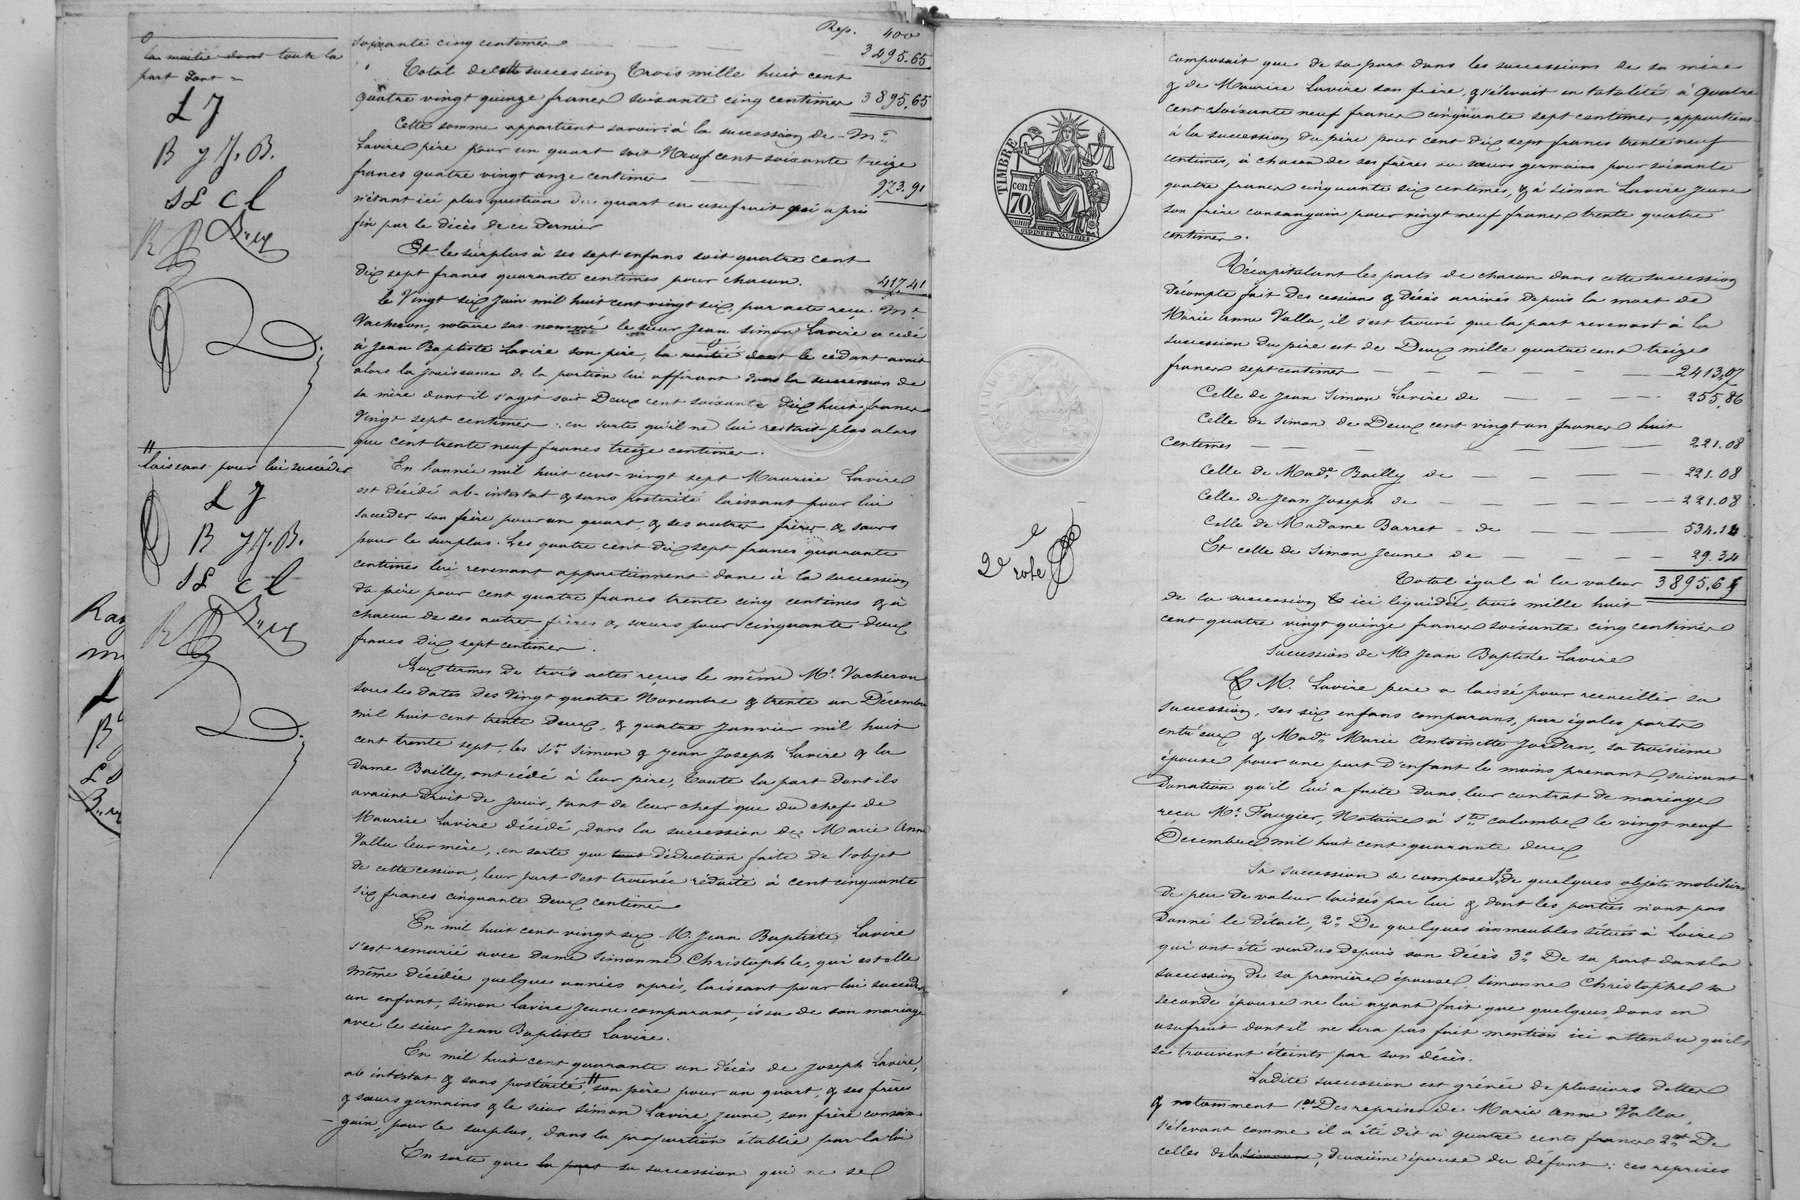 Rep. 400
soixante cinq centimes — — — 3495.65
Total de cette succession Trois mille huit cent
quatre vingt quinze francs soixante cinq centimes 3895.65
Cette somme appartient savoir: à la succession de Mr
Lavire père pour un quart soit Neuf cent soixante treize
francs quatre vingt onze centimes — — — 973.91
n'étant ici plus question du quart en usufruit qui a pris
fin par le décès de ce dernier
Et le surplus à ses sept enfans soit quatre cent
dix sept francs quarante centimes pour chacun. 417.41
Le Vingt six Juin mil huit cent vingt six, par acte reçu Me
Vacheron, notaire sus nommé le sieur Jean Simon Lavire a cédé
à Jean Baptiste Lavire son père, la moitié dont le cédant avait
alors la jouissance de la portion lui afférant dans la succession de
sa mère dont il s'agit soit Deux cent soixante dix huit francs
Vingt sept centimes: en sorte qu'il ne lui restait plus alors
que cent trente neuf francs treize centimes.
En l'année mil huit cent vingt sept Maurice Lavire
est décédé ab-intestat & sans postérité laissant pour lui
succéder son père pour un quart, & ses autres frères & sœurs
pour le surplus. Les quatre cent dix sept francs quarante
centimes lui revenant appartiennent donc à la succession
du père pour cent quatre francs trente cinq centimes & à
chacun de ses autres frères & sœurs pour cinquante deux
francs dix sept centimes.
Aux termes de trois actes reçus le même Me Vacheron
sous les dates des Vingt quatre Novembre & trente un Décembre
mil huit cent trente deux, & quatre Janvier mil huit
cent trente sept, les Srs Simon & Jean Joseph Lavire & la
Dame Bailly, ont cédé à leur père, toute la part dont ils
avaient droit de jouir, tant de leur chef que du chef de
Maurice Lavire décédé, dans la succession de Marie Anne
Valla leur mère, en sorte que tout déduction faite de l'objet
de cette cession, leur part s'est trouvée réduite à cent cinquante
six francs cinquante deux centimes
En mil huit cent vingt six M. Jean Baptiste Lavire
s'est remarié avec dame Simonne Christophle, qui est elle
même décédée quelques années après, laissant pour lui succéder
un enfant, Simon Lavire Jeune comparant, issu de son mariage
avec le sieur Jean Baptiste Lavire.
En mil huit cent quarante un décès de Joseph Lavire,
ab intestat & sans postérité, " son père pour un quart, & ses frères
& sœurs germains & le sieur Simon Lavire jeune, son frère consan
- guin, pour le surplus, dans la proportion établie par la loi
En sorte que la part sa succession qui ne se
la moitié dont toute la
part dont =
L J
B y J. B.
S L C l
R
" laissant pour lui succéder
L J
B y J. B.
S L C l
R
composait que de sa part dans les successions de sa mère
& de Maurice Lavire son frère, & s'élevait en totalité à quatre
cent soixante neuf francs cinquante sept centimes, appartient
à la succession du père pour cent dix sept francs trente neuf
centimes, à chacun de ses frères ou sœurs germains pour soixante
quatre francs cinquante six centimes, & à Simon Lavire Jeune
son frère consanguin pour vingt neuf francs trente quatre
centimes.
Récapitulant les parts de chacun dans cette succession
décompte fait des cessions & décès arrivés depuis la mort de
Marie Anne Valla, il s'est trouvé que la part revenant à la
succession du père est de Deux mille quatre cent treize
francs sept centimes — — — 2413.07
Celle de Jean Simon Lavire de — — — 255.86
Celle de Simon de Deux cent vingt un francs huit
centimes — — — 221.08
Celle de Made Bailly de — — — 221.08
Celle de Jean Joseph de — — — 221.08
Celle de Madame Barret de — — — 534.14
Et celle de Simon Jeune de — — — 29.34
Total égal à la valeur 3895.65
de la succession ici liquidée, trois mille huit
cent quatre vingt quinze francs soixante cinq centimes
Succession de M. Jean Baptiste Lavire
M. Lavire père a laissé pour recueillir sa
succession, ses six enfans comparans, par égales parts
entr'eux & Made Marie Antoinette Jordan, sa troisième
épouse pour une part d'enfant le moins prenant, suivant
Donation qu'il lui a faite dans leur contrat de mariage
reçu Me Faugier, Notaire à Ste Colombe le vingt neuf
Décembre mil huit cent quarante deux
Sa succession se compose 1o de quelques objets mobiliers
de peu de valeur laissés par lui & dont les parties n'ont pas
donné le détail, 2o De quelques immeubles situés à Loire
qui ont été vendus depuis son décès 3o De sa part dans la
succession de sa première épouse, Simonne Christophle sa
seconde épouse ne lui ayant fait que quelques dons en
usufruit dont il ne sera pas fait mention ici attendu qu'ils
se trouvent éteints par son décès.
Ladite succession est grévée de plusieurs dettes
& notamment 1ent Des reprises de Marie Anne Valla,
s'élevant comme il a été dit à quatre cents francs 2ent De
celles de la Simonne, deuxième épouse du défunt: ces reprises
TIMBRE
70 cen
2e rôle